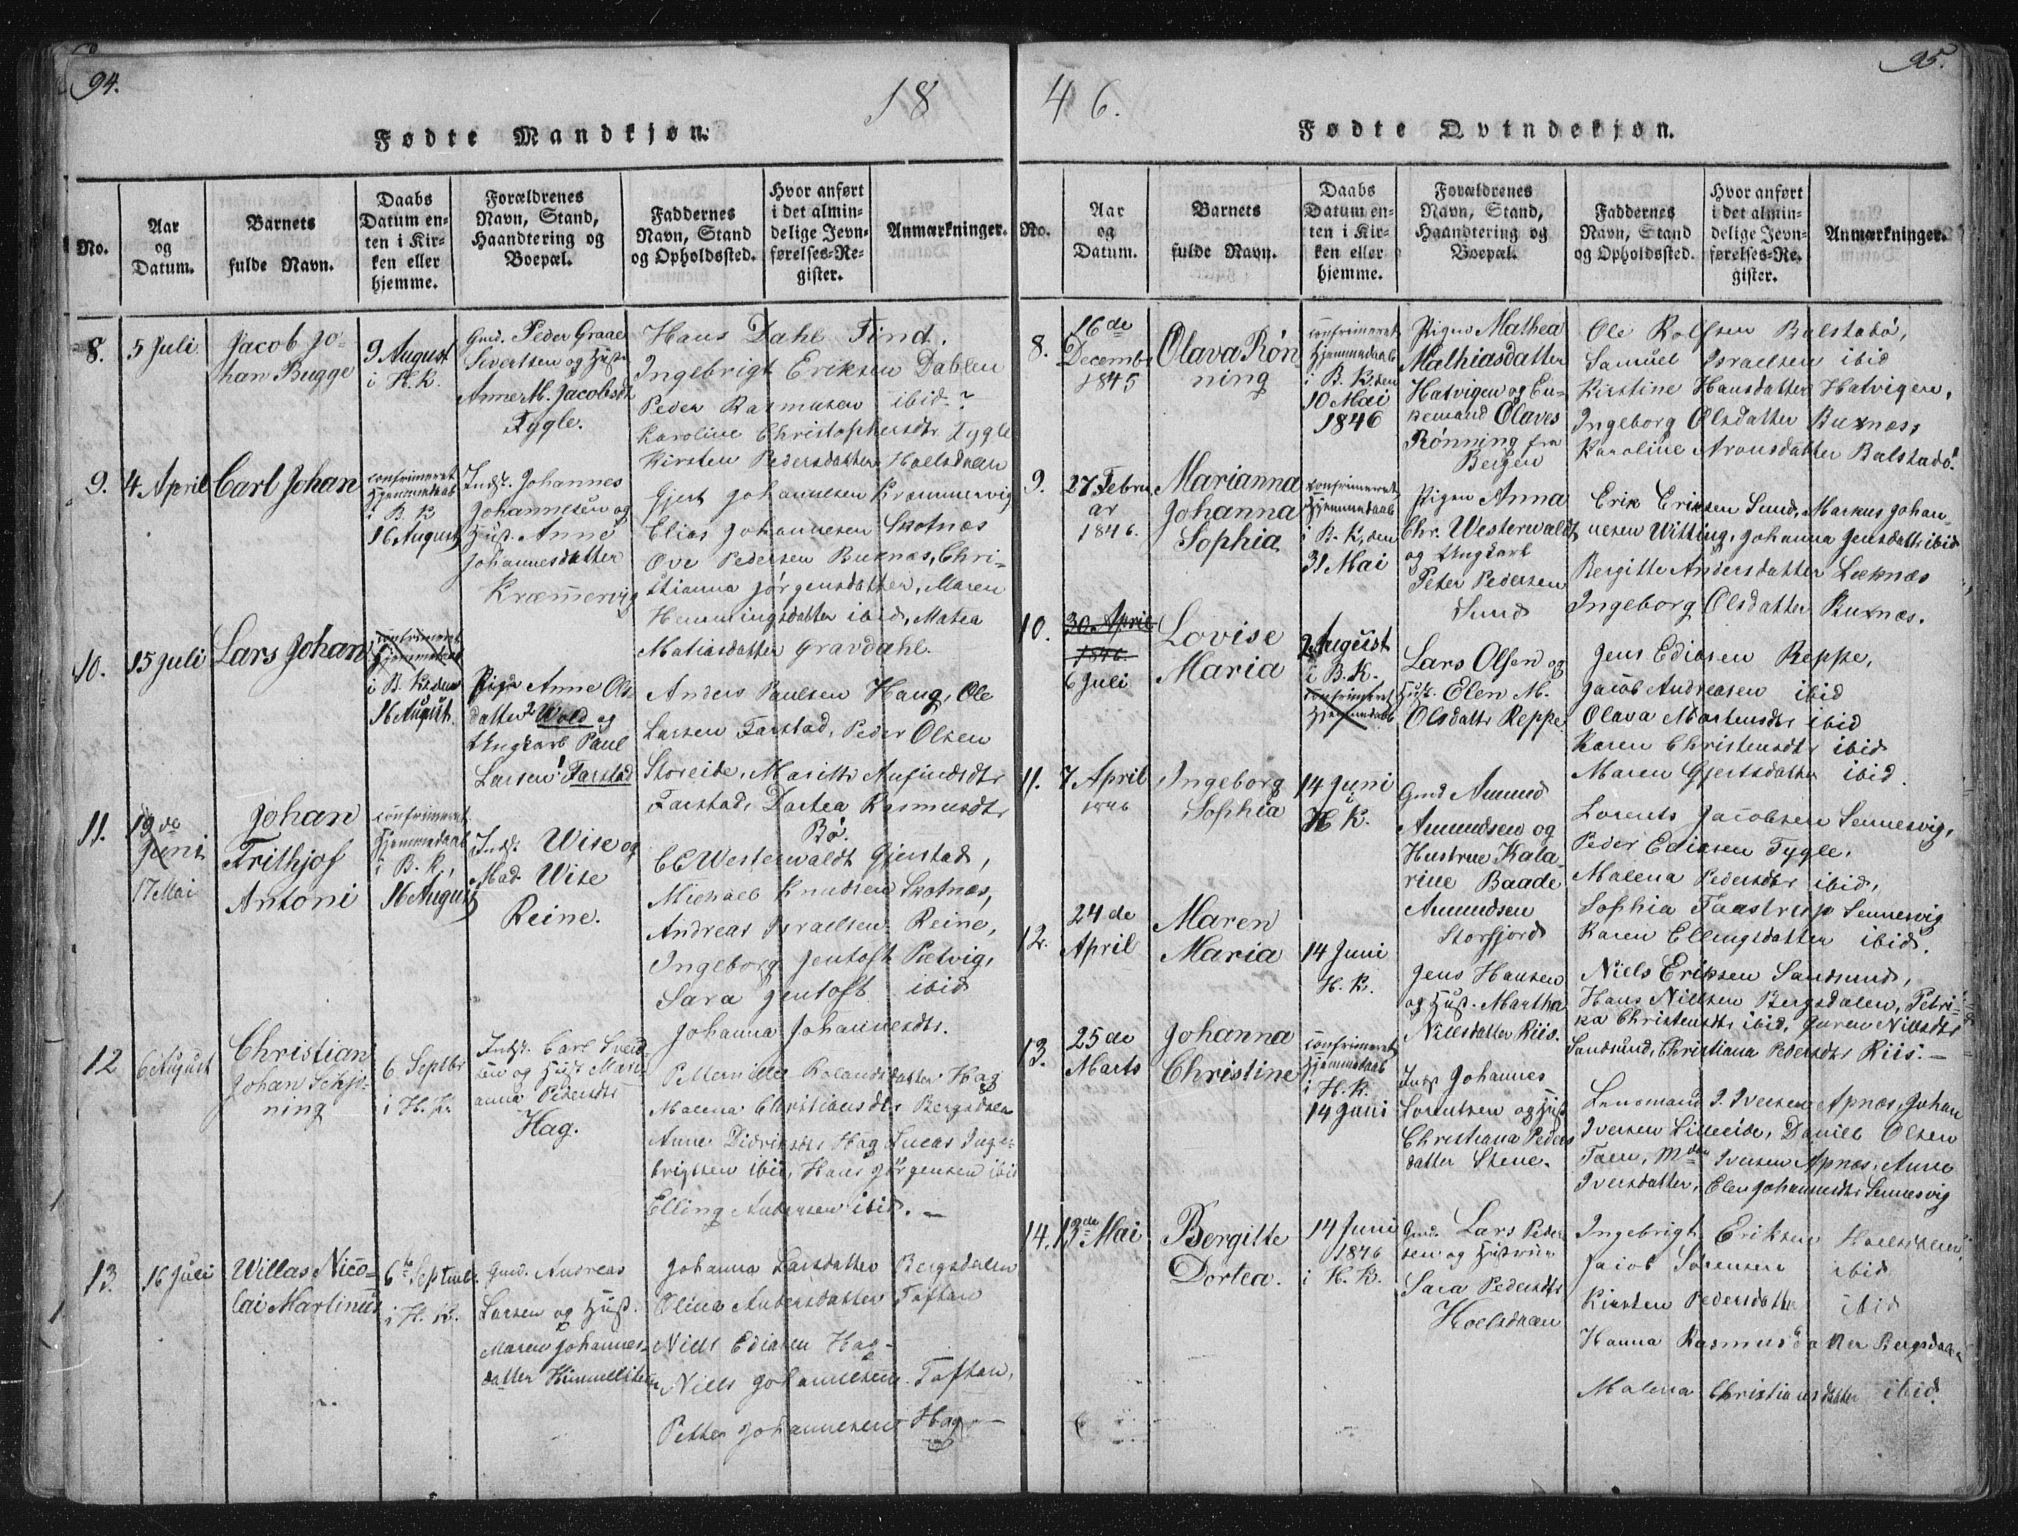 94.
18
Fødte Mandkjøn.
No.
Aar og Datum.
Barnets fulde Navn.
Daabs Datum enten i Kirken eller hjemme.
Forældrenes Navn, Stand, Haandtering og Boepæl.
Faddernes Navn, Stand og Opholdssted.
Hvor anført i det almindelige Jevnførelses-Register.
Anmærkninger.
8.
5 Juli
Jacob Jo-
han Bugge
9 August
i H. K.
Gmd. Peder Graae
Sivertsen og Hust.
Anne M. Jacobsdt
Fygle.
Hans Dahl Find.
Ingebrigt Eriksen Dahlen
Peder Rasmusen ibid.
Karoline Christophersdtr Fygle
Kirsten Pedersdatter Hoelsdalen
9.
4 April
Carl Johan
confrimeret
Hjemmedaab
i B. K
16 August
Indst. Johannes
Johannesen og
Hust. Anne
Johannesdatter
Kræmmervig
Gjert Johannesen Kræmmervig
Elias Johannesen Skotnæs
Ove Pedersen Buxnæs, Chri-
stianna Jørgensdatter, Maren
Hemmingsdatter ibid, Matea
Matiasdatter Gravdahl.
10.
15 Juli
Lars Johan
confrimeret
Hjemmedaab
i B. K. den
16 August.
Pige Anne Ols-
datter Wold og
Ungkarl Paul
Larsen Farstad
Anders Paulsen Haug, Ole
Larsen Farstad, Peder Olsen
Storeide, Marith Anfindsdtr
Farstad, Dortea Rasmusdtr
Bø.
11.
19de
Juni
17 Mai
Johan
Frithjof
Antoni
confrimeret
Hjemmedaab
i B. K,
16 August
Indst. Wise og
Mad. Wise
Reine.
CC Westerwaldt Gjerstad,
Michael Knudsen Skotnæs,
Andreas Israelsen Reine,
Ingeborg Jentoft Petvig,
Sara Jentoft ibid
Johanna Johannesdtr.
12
6 August
Christian
Johan Schjø-
ning
6 Septbr
i H. K.
Indst. Carl Svend-
sen og Hust Mari-
anna Pedersdtr
Hag.
Petternille Rolandsdatter Hag
Malena Christiansdtr Bergsdalen
Anne Didriksdtr Hag Lucas Inge-
brigtsen ibid, Hans Jørgensen ibid
Elling Andersen ibid. —
13.
16 Juli
Willas Nico-
lai Martinus
6te Septemb.
i H. K.
Gmd. Andreas
Larsen og Hust.
Maren Johannes-
datter Himmelsteen
Johanna Larsdatter Bergsdalen
Olina Andersdatter Toftan
Niels Ediasen Hag
Niels Johannesen Toftan,
Petter Johannesen Hag —
95.
46.
Fødte Qvindekjøn.
No.
Aar og Datum.
Barnets fulde Navn.
Daabs Datum enten i Kirken eller hjemme.
Forældrenes Navn, Stand, Haandtering og Boepæl.
Faddernes Navn, Stand og Opholdssted.
Hvor anført i det almindelige Jevnførelses-Register.
Anmærkninger.
8.
16de
Decemb
1845
Olava Røn
ning
confrimeret
Hjemmedaab
i B. K. den
10 Mai
1846
Pigen Mathea
Mathiasdatter
Hatvigen og En-
kemand Olaves
Rønning fra
Bergen
Ole Rolfsen Balstadø,
Samuel Israelsen ibid
Kirstine Hansdatter Hatvigen,
Ingeborg Olsdatter Buxnæs,
Karoline Aronsdatter Balstadø.
9.
27 Febru
ar
1846.
Marianna
Johanna
Sophia
confrimeret
Hjemmedaab
i B. K, den
31 Mai
Pigen Anna
Chr. Westerwaldt
og Ungkarl
Peter Pedersen
Sund
Erik Eriksen Sund, Markus Johan-
nesen Witting, Johanna Jensdattr ibid
Bergitte Andersdatter Leknæs
Ingeborg Olsdatter Buxnæs.
10.
30 April
1846.
6 Juli
Lovise
Maria
2 August
i B. K.
confrimeret
Hjemmedaab
Lars Olsen og
Hust. Elen M.
Olsdattr Reppe
Jens Ediasen Reppe,
Jacob Andreasen ibid
Olava Mortensdtr ibid
Karen Christensdtr ibid
Maren Gjertsdatter ibid.
11.
7 April
1846
Ingeborg
Sophia
14 Juni
i
H. K.
Gmd Amund
Amundsen og
Hustrue Kata-
rine Baade
Amundsen
Storfjord
Lorents Jacobsen Sennesvig,
Peder Ediasen Fygle,
Malena Pedersdtr ibid,
Sophia Taastrup Sennesvig
Karen Ellingsdatter ibid.
12.
24de
April
Maren
Maria
14 Juni
H. K.
Jens Hansen
og Hust. Martha
Nilsdatter Riis.
Niels Eriksen Sandsund,
Hans Nielsen Bergsdalen, Petri-
ka Christensdtr ibid, Guren Nilsdtr
Sandsund, Christiana Pedersdtr Riis. —
13.
25de
Marts
Johanna
Christine
confrimeret
Hjemmedaab
i H. K.
14 Juni
Indst Johannes
Lorentsen og Hust
Christiana Peders
datter Steene.
Lensmand I. Iversen Apnæs, Johan
Iversen Lilleeide, Daniel Olsen
Taen, Mdm Iversen Apnæs, Anne
Iversdatter, Elen Johannesdtr Sennesvig
14.
13de Mai
Bergitte
Dortea.
14 Juni
1846
i H. K.
Gmd. Lars Peder
sen og Hustrue
Sara Pedersdtr
Hoelsdalen
Ingebrigt Eriksen Hoelsdalen
Jacob Sørensen ibid
Kirsten Pedersdatter ibid
Hanna Rasmusdatter Bergsdalen
Malena Christiansdatter ibid.